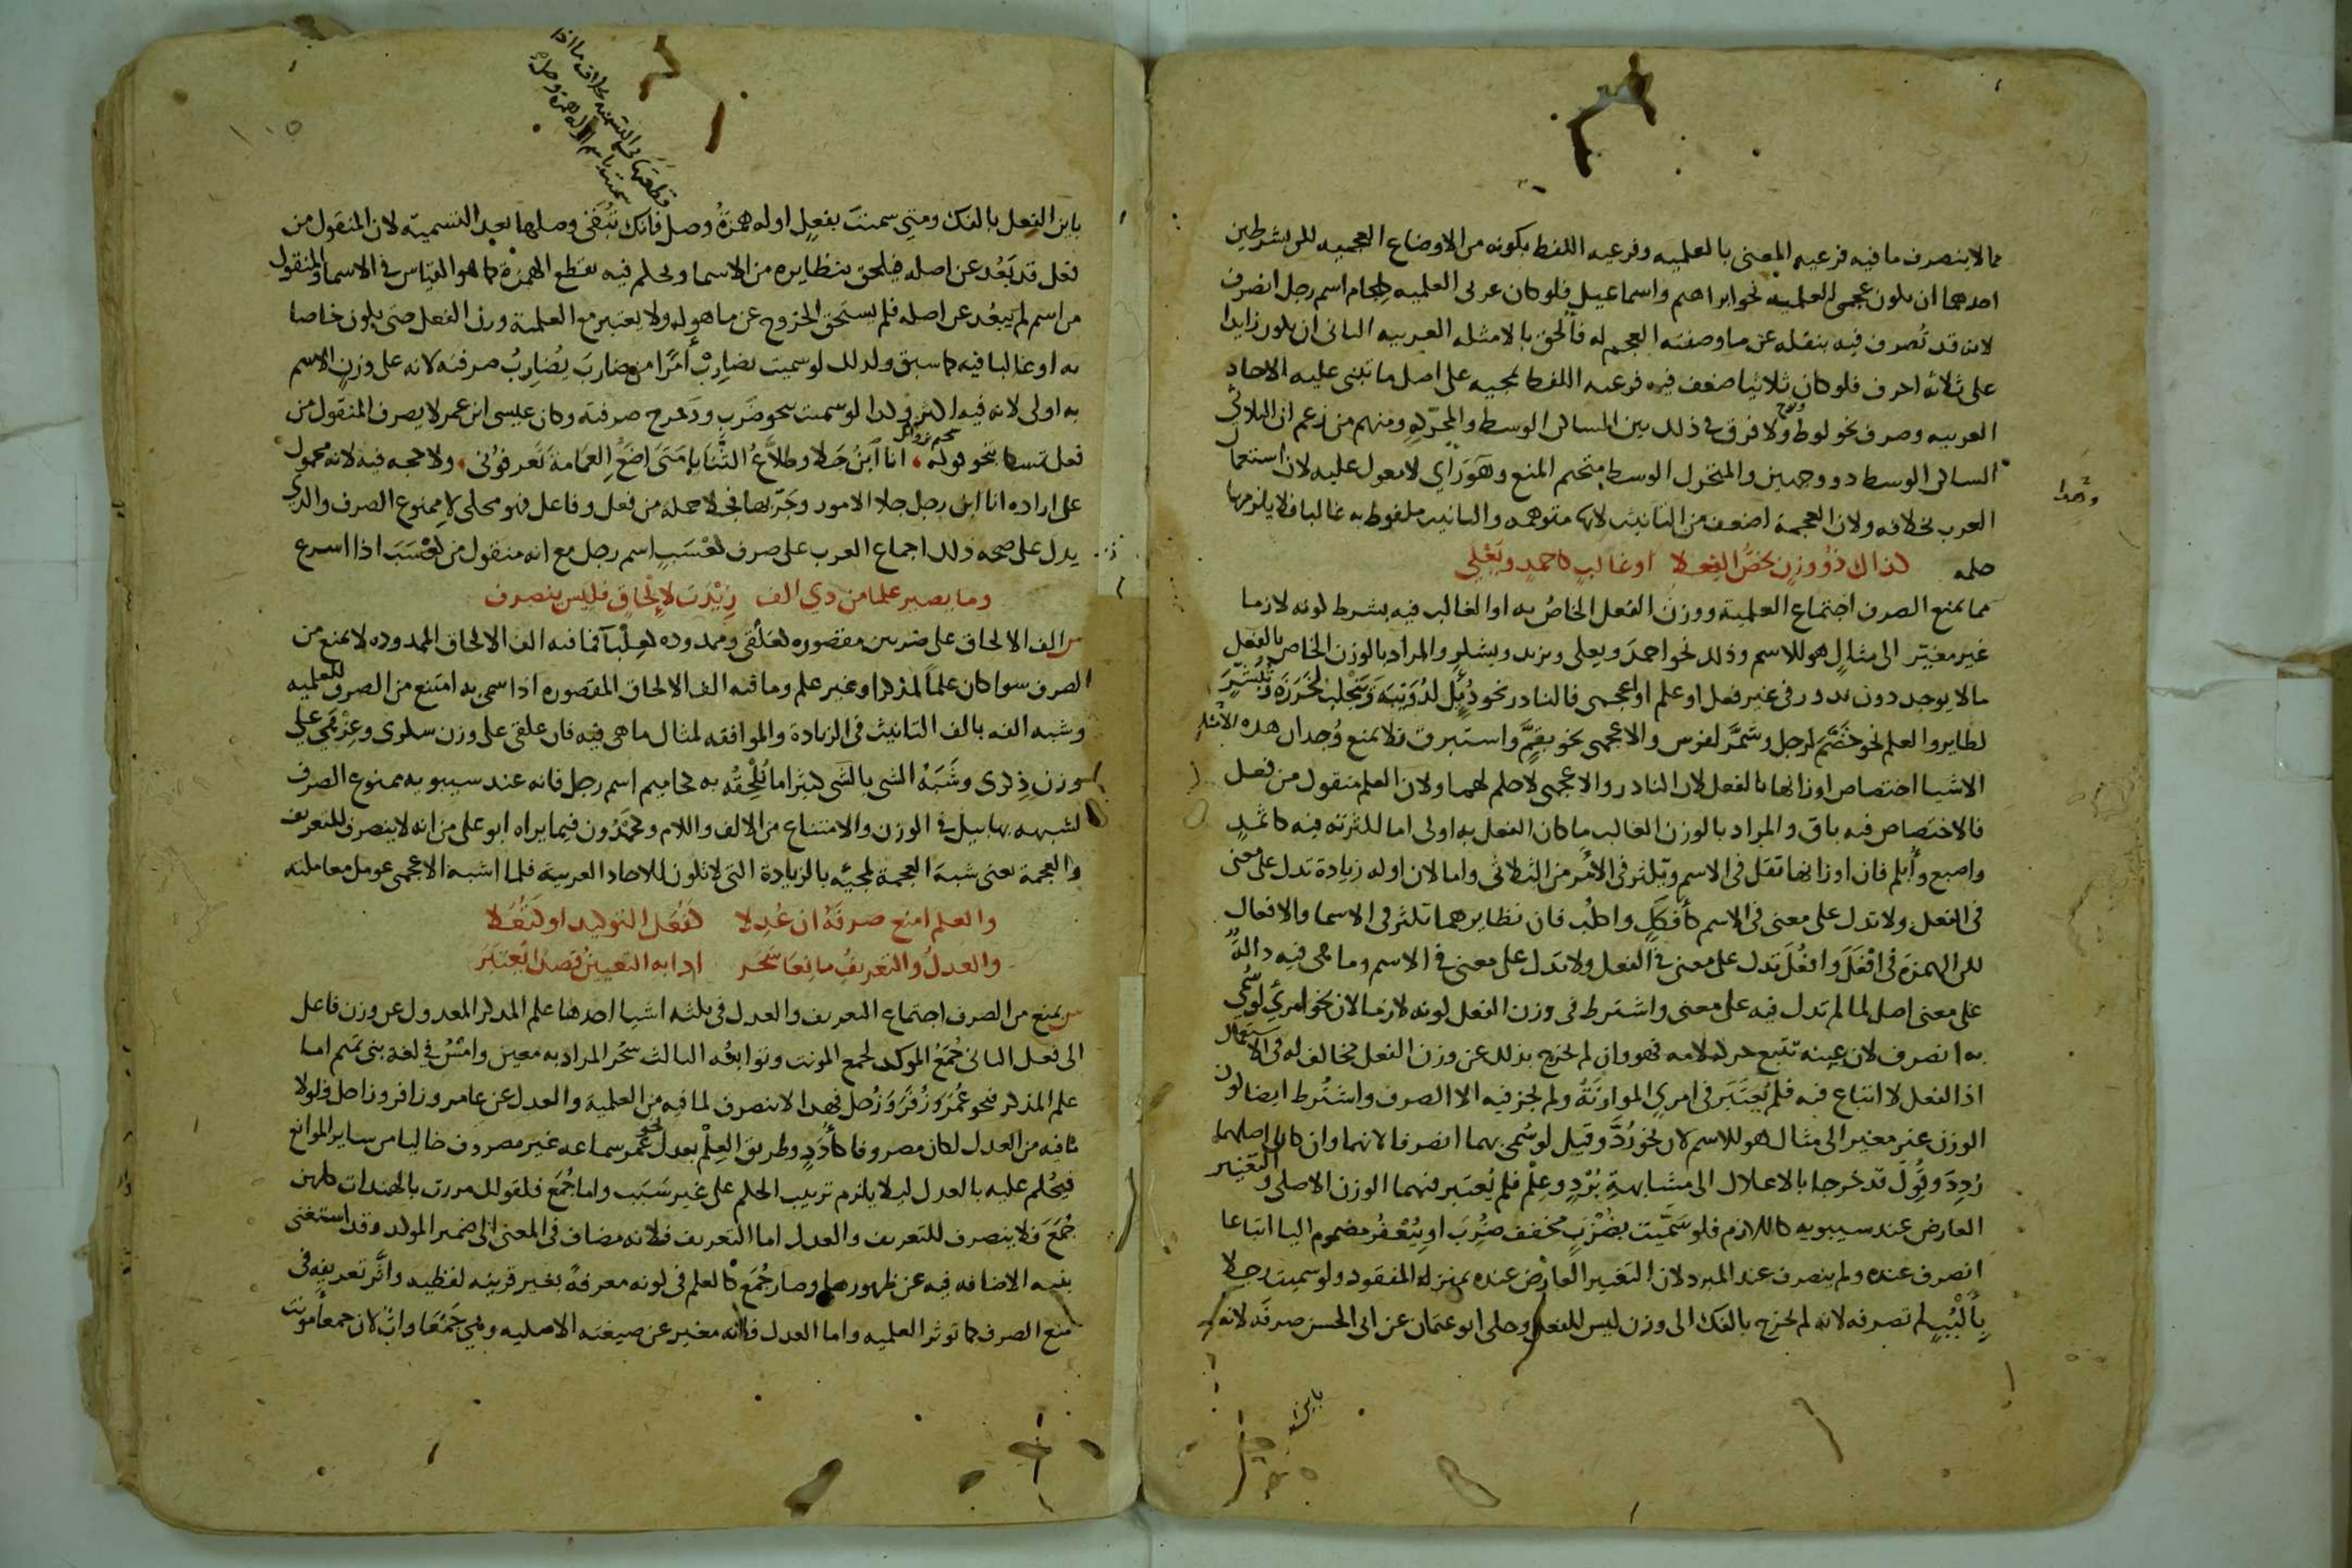 مما لا ينصرف ما فيه فرعيه المعنى بالعلميه وفرعيه اللفظ بكونه من الاوضاع العجميه لكن بشرطين
احدهما ان يكون عجمي العلميه نحو ابراهيم واسماعيل فلو كان عربي العلميه كلجام اسم رجل انصرف
لانه قد تُصرف فيه بنقله عن ما وضعته العجم له فالحق بالامثله العربيه الثاني ان يكون زايدا
على ثلاثة احرف فلو كان ثلاثيا ضعف فيه فرعيه اللفظ لمجيه على اصل ما تبنى عليه الاحاد
العربيه وصرف نحو لوط ونوح ولا فرق في ذلك بين الساكن الوسط والمحرّكه ومنهم من زعم ان الثلاثي
الساكن الوسط ذو وجهين والمتحرك الوسط متحتم المنع وهو رَاي لا معول عليه لان استعمال
العرب بخلافه ولان العجمة اضعف من التانيث لانها متوهمه والتانيث ملفوظ به غالبا فلا يلزمها
حكمه
كذاك ذُو وزنٍ يخصُّ الفعلا اوغالبٍ كاحمدٍ ويَعْلي
مما يمنع الصرف اجتماع العلمية ووزن الفعل الخاصُ به او الغالب فيه بشرط كونه لازما
غير مغيّر الى مثالٍ هو للاسم وذلك نحو احمدَ ويعلى ويزيد ويشكر والمراد بالوزن الخاص بالفعل
ما لا يوجد دون ندور في غير فعل او علم او اعجمي فالنادر نحو دُيِّل لدُوَيبّة ويَنْجَلب لخَرَزَة وتُبَشِّر
لطاير والعلم نحو خضَّمَ لرجل وشمَّر لفرس والاعجمي نحو بقَّم واستبرق فلا يمنع وُجدان هذه الامثله
الاشيا اختصاص اوزانها بالفعل لان النادر والاعجمي لا حكم لهما ولان العلم منقول من فعل
فالاختصاص فيه باق والمراد بالوزن الغالب ما كان الفعل به اولى اما لكثرته فيه كاثمدٍ
واصبع وأبلم فان اوزانها تقل في الاسم وتكثر في الامر من الثلاثي واما لان اوله زيادة تدل على معنى
في الفعل ولا تدل على معنى في الاسم كأفكَلٍ واكلُب فان نظايرهما تكثر في الاسما والافعال
لكن الهمزة في افْعَلَ وافعُلُ تدل على معنى في الفعل ولا تدل على معنى في الاسم وما هي فيه دالةً
على معنى اصل لما لم تدل فيه على معنى واشترط في وزن الفعل كونه لازما لان نحو امرئٍ لو سُمي
به انصرف لان عينه تتبع حركة لامه فهو وان لم يخرج بذلك عن وزن الفعل مخالف له في الاستعمال
اذ الفعل لا اتباع فيه فلم يُعتَبَر في امرئ الموازنَةُ ولم يجز فيه الا الصرف واشتُرط ايضا كون
الوزن غير مغير الى مثال هو للاسم لان نحو رُدَّ وقيل لو سُمي بهما انصرفا لانهما وان كان اصلهما
رُدِدَ وقُوِلَ قد خرجا بالاعلال الى مشابهة بُرْدٍ وعِلْم فلم يُعتبر فيهما الوزن الاصلي والتغيير
العارض عند سيبويه كاللازم فلو سَمَّيت بضُرْبَ مخفف ضُرِبَ او يُعْفُر مضموم اليا اتباعا
انصرف عنده ولم ينصرف عند المبرد لان التغيير العارض عنده بمنزلة المفقود ولو سميت رجلا
بأَلْبُبٍ لم تصرفه لانه لم يخرج بالفك الى وزن ليس للفعل وحكى ابو عثمان عن ابي الحسن صرفَه لانه
باين
باين الفعل بالفك ومتى سميت بفعلٍ اوله همزةُ وصل فانك تُبقي وصلها بعد التسمية لان المنقول من
فعل قد بَعُد عن اصله فيلحق بنظايره من الاسما ويحكم فيه بقطع الهمزة كما هو القياس في الاسما والمنقول
من اسم لم يبعُد عن اصله فلم يستحق الخروج عن ما هو له ولا يعتبر مع العلمية وزن الفعل حتى يكون خاصا
به او غالبا فيه كما سبق ولذلك لو سميت بضارِبْ أمرًا من ضارَبَ يُضارِبُ صرفته لانه على وزن الاسم
به اولى لانه فيه اكثر وكذا لو سميت بنحو ضَرب ودَحرج صرفته وكان عيسى ابن عمر لا يصرف المنقول من
فعل تمسكا بنحو قوله انا ابنُ جَلا وطلاَّعُ الثَّنايا مَتى اضَع العِمَامة تَعرفوني ولا حجه فيه لانه محمول
على اراده انا ابن رجل جلا الامور وجَرّبها فجلا جملة من فعل وفاعل فهو محكي لا ممنوع الصرف والذي
يدل على صحه ذلك اجماع العرب على صرف كعْسَبٍ اسم رجل مع انه منقول من كعْسَبَ اذا اسرع
وما يصير علما من ذي الف زيْدَت لإلْحاقٍ فليس ينصرف
الف الالحاق على ضربين مقصوره كعَلْقى وممدوده كعِلْبآ فما فيه الف الالحاق الممدوده لا يمنع من
الصرف سوا كان علماً لمذكر او غير علم وما فيه الف الالحاق المقصوره اذا سمي به امتنع من الصرف للعلميه
وشبه الفه بالف التانيث في الزيادة والموافقه لمثال ما هي فيه فان علقى على وزن سكرى وعِزْهًى على
وزن ذِكرى وشَبَهُ الشي بالشي كثيرا ما يُلْحِقُه به كحاميم اسم رجل فانه عند سيبويه ممنوع الصرف
لشبهه بهابيل في الوزن والامتناع من الالف واللام وكحَمْدُون فيما يراه ابو علي من انه لا ينصرف للتعريف
والعجمة يعني شبهَ العجمة لمجيئه بالزيادة التي لا تكون للاحاد العربية فلما اشبه الاعجمي عومل معاملته
والعلم امنع صرفَهُ ان عُدِلا كفُعَل التوكيد او كثُعَلا
والعدلُ والتعريفُ مانِعَا سَحَر اذا به التعيينُ قصدًا يُعتَبَرُ
يمنع من الصرف اجتماع التعريف والعدل في ثلثه اشيا احدها علم المذكر المعدول عن وزن فاعل
الى فعل الثاني جُمَعُ الموكد لجمع المونث وتوابعُه الثالث سَحَر المراد به معين وامْسُ في لغة بني تميم اما
علم المذكر فنحو عُمَرَ وزُفَرَ وَزُحَل فهذا لا ينصرف لما فيه من العلمية والعدل عن عامر وزافر وزاحل ولولا
ما فيه من العدل لكان مصروفا كأُدَدٍ وطريق العِلْم بعدل نحو عُمر سماعه غير مصروف خاليا من ساير الموانع
فيحُكم عليه بالعدل ليلا يلزم ترتيب الحكم على غير سَبَب واما جُمَع فلقولك مررت بالهندات كلهن
جُمَعَ فلا ينصرف للتعريف والعدل اما التعريف فلانه مضاف في المعنى الى ضمير الموكد وقد استغنى
بنيه الاضافه فيه عن ظهورها وصار جُمَع كالعلم في كونه معرفةً بغير قرينه لفظيه واثَّر تعريفه في
منع الصرف كما توثر العلميه واما العدل فلانه مغير عن صيغته الاصليه وهي جَمْعَاوات لان جمعا مونث